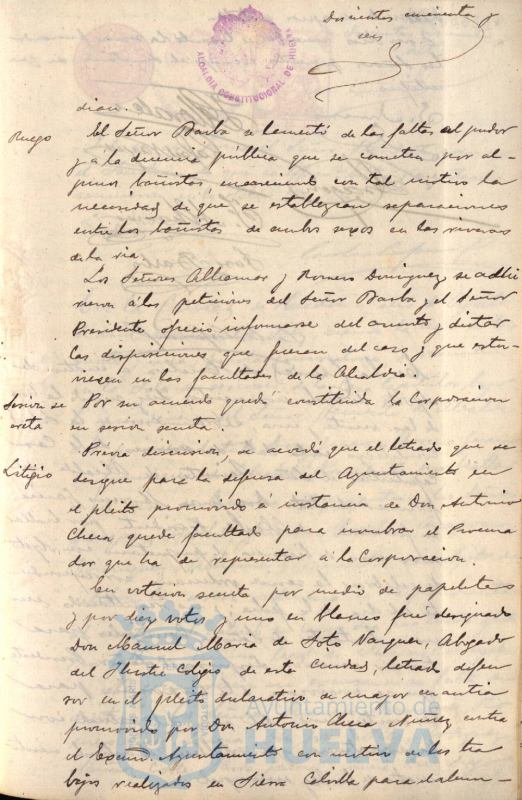 Doscientos cincuenta y
seis
ALCALDIA CONSTITUCIONAL DE HUELVA
dian.
Ruego
El Señor Barba se lamentó de las faltas al pudor
y a la decencia pública que se cometen por al-
gunos bañistas, encareciendo con tal motivo la
necesidad de que se establezcan separaciones
entre los bañistas de ambos sexos en las riveras
de la ria.
Los Señores Alhamar y Romero Dominguez se adhi
rieron á las peticiones del Señor Barba y el Señor
Presidente ofreció informarse del asunto y dictar
las disposiciones que fueran del caso y que estu-
viesen en las facultades de la Alcaldia.
Sesion se
creta
Por su acuerdo quedó constituida la Corporacion
en sesion secreta.
Litigio
Prévia discusion, se acordó que el letrado que se
designe para la defensa del Ayuntamiento en
el pleito promovido á instancia de Don Antonio
Checa quede facultado para nombrar el Procura
dor que ha de representar á la Corporacion.
En votacion secreta por medio de papeletas
y por diez votos y uno en blanco fué designado
Don Manuel Maria de Soto Vazquez, Abogado
del Ilustre Colegio de esta Ciudad, letrado defen
sor en el pleito declarativo de mayor cuantia
promovido por Don Antonio Checa Nuñez contra
el Excmo. Ayuntamiento con motivo de los tra
bajos realizados en Sierra Cabilla para el alum-
Ayuntamiento de
HUELVA